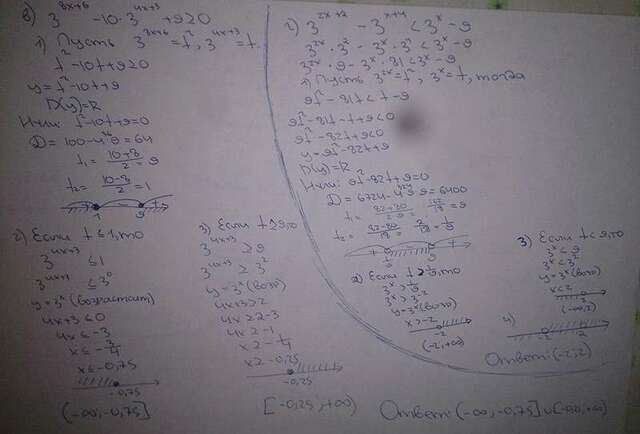 в) 3^{8x+6} - 10·3^{4x+3} + 9 ≥ 0
1) Пусть 3^{8x+6} = t², 3^{4x+3} = t.
t² - 10t + 9 ≥ 0
y = t² - 10t + 9
D(y) = R
Нули: t² - 10t + 9 = 0
D = 100 - 4·9 = 64
t₁ = (10+8)/2 = 9
t₂ = (10-8)/2 = 1
+ - +
1 9
2) Если t ≤ 1, то
3^{4x+3} ≤ 1
3^{4x+3} ≤ 3⁰
y = 3ˣ (возрастает)
4x+3 ≤ 0
4x ≤ -3
x ≤ -3/4
x ≤ -0,75
-0,75
(-∞; -0,75]
3) Если t ≥ 9, то
3^{4x+3} ≥ 9
3^{4x+3} ≥ 3²
y = 3ˣ (возр)
4x+3 ≥ 2
4x ≥ 2-3
4x ≥ -1
x ≥ -1/4
x ≥ -0,25
-0,25
[-0,25; +∞)
г) 3^{2x+2} - 3^{x+4} < 3ˣ - 9
3^{2x}·3² - 3ˣ·3⁴ < 3ˣ - 9
3^{2x}·9 - 3ˣ·81 < 3ˣ - 9
1) Пусть 3^{2x} = t², 3ˣ = t, тогда
9t² - 81t < t - 9
9t² - 81t - t + 9 < 0
9t² - 82t + 9 < 0
y = 9t² - 82t + 9
D(y) = R
Нули: 9t² - 82t + 9 = 0
D = 6724 - 4·9·9 = 6400
t₁ = (82+80)/(2·9) = 162/18 = 9
t₂ = (82-80)/18 = 2/18 = 1/9
+ - +
2) Если t > 1/9, то
3ˣ > 1/9
3ˣ > 3⁻²
y = 3ˣ (возр)
x > -2
-2
(-2; +∞)
3) Если t < 9, то
3ˣ < 9
3ˣ < 3²
y = 3ˣ (возр)
x < 2
2
(-∞; 2)
4)
-2 2
Ответ: (-2; 2)
Ответ: (-∞; -0,75] ∪ [-0,25; +∞)